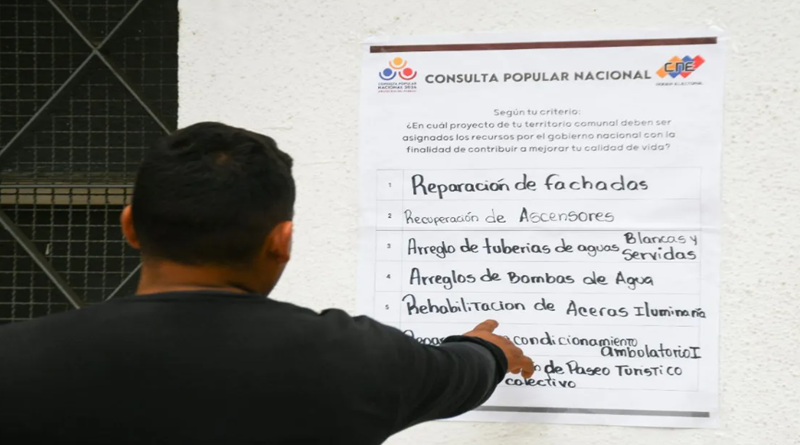 CONSULTA POPULAR
NACIONAL 2024
CONSULTA POPULAR NACIONAL
CNE
Según tu criterio:
¿En cuál proyecto de tu territorio comunal deben ser
asignados los recursos por el gobierno nacional con la
finalidad de contribuir a mejorar tu calidad de vida?
1 Reparación de fachadas
2 Recuperación de Ascensores
3 Arreglo de tuberias de aguas Blancas y
Servidas
4 Arreglos de Bombas de Agua
5 Rehabilitacion de Aceras Iluminaria
condicionamiento
ambulatorio I
de Paseo Turistico
colectivo